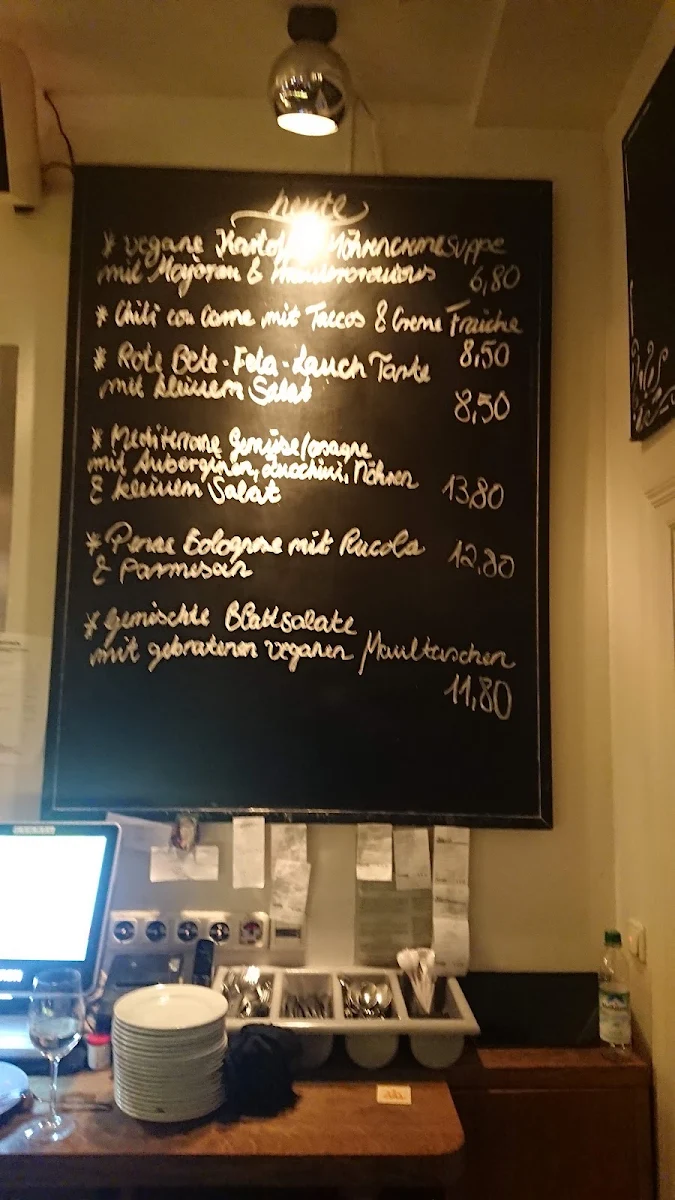 heute
* vegane Möhrencremesuppe
mit Majoran &
6,80
* Chili con Carne mit Taccos & Creme Fraiche
8,50
* Rote Bete-Feta-Lauch Tarte
mit kleinem Salat
8,50
* Mediterrane Gemüselasagne
mit Auberginen, Zucchini, Möhren
& kleinem Salat 13,80
* Penne Bolognese mit Rucola
& Parmesan 12,80
* Gemischte Blattsalate
mit gebratenen veganen Maultaschen
11,80